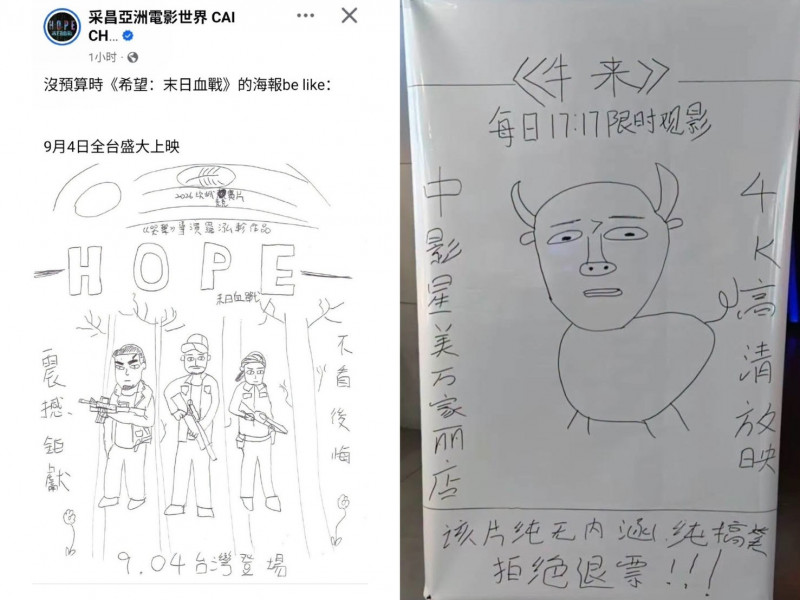 采昌亞洲電影世界 CAI
CH...
1小时
沒預算時《希望：末日血戰》的海報be like：
9月4日全台盛大上映
2026坎城競賽片
《哭聲》導演羅泓軫作品
HOPE
末日血戰
震撼鉅獻
不看後悔
9.04台灣登場
《牛来》
每日17:17限时观影
中影星美万家丽店
4K高清放映
该片纯无内涵.纯搞笑
拒绝退票!!!